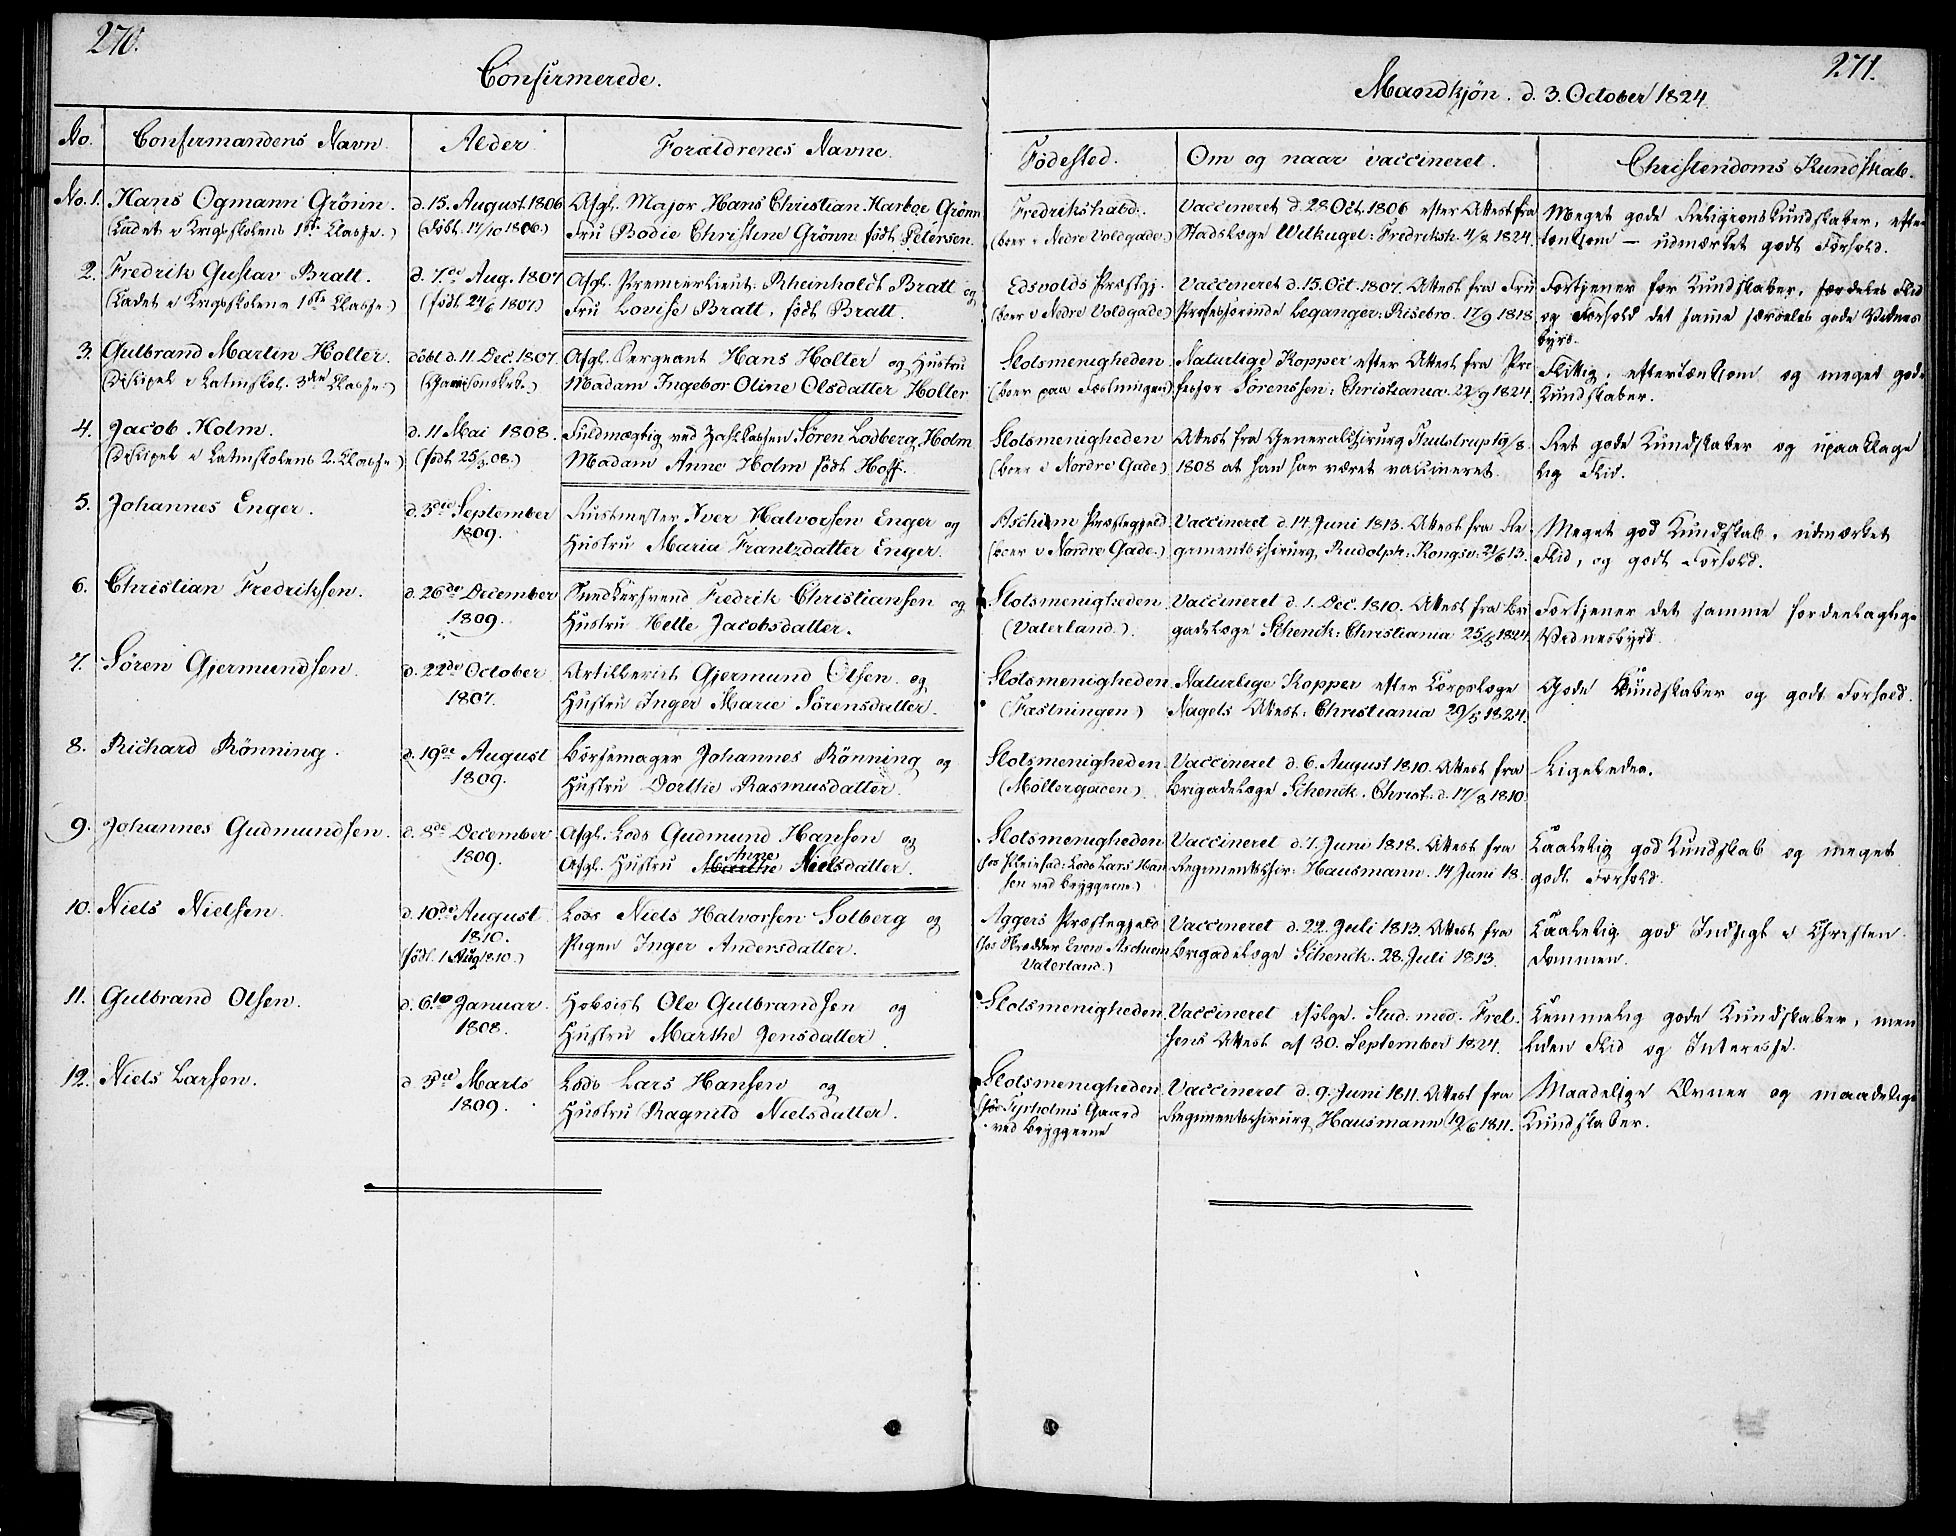 270.
Confirmerede.
No. Confirmandens Navn. Alder. Forældrenes Navne.
No. 1. Hans Ogmann Grönn. d. 15. August 1806 Afgl. Major Hans Christian Harboe Grönn
(Cadet v Krigsskolens 1ste Classe.) (Döbt. 17/10 1806.) Fru Bodie Christine Grönn födt Petersen.
2. Fredrik Gustav Bratt. d. 7de Aug. 1807 Afgl. Premierlieut. Rheinholdt Bratt og
(Cadet v Krigsskolens 1ste Classe.) (födt 24/6 1807) Fru Lovise Bratt, födt Bratt.
3. Gulbrand Martin Holter. döbt d. 11. Dec. 1807. Afgl. Sergeant Hans Holter og Hustru
(Discipel v Latinskol. 3die Classe.) Madam Ingebor Oline Olsdatter Holter
4. Jacob Holm. d. 11 Mai 1808. Fuldmægtig ved Sören Lodberg Holm
(Discipel v Latinskolens 2. Classe.) (födt 25/3 08.) Madam Anne Holm födt Hoff.
5. Johannes Enger. d. 3die September Rustmester Iver Halvorsen Enger og
1809. Hustru Maria Frantzdatter Enger.
6. Christian Fredriksen. d. 26de December Fredrik Christiansen og
1809. Hustru Helle Jacobsdatter.
7. Sören Gjermundsen. d. 22de October Artillerist Gjermund Olsen og
1807. Hustru Inger Marie Sörensdatter.
8. Richard Rönning. d. 19de August Börsemager Johannes Rönning og
1809. Hustru Dorthe Rasmusdatter.
9. Johannes Gudmundsen. d. 8de December Afgl. Lods Gudmund Hansen og
1809. Afgl. Hustru Marthe Anne Nielsdatter.
10. Niels Nielsen. d. 10de August Lods Niels Halvorsen Solberg og
1810. Pigen Inger Andersdatter.
(födt. 1 Aug 1810.)
11. Gulbrand Olsen. d. 6te Januar. Hoboist Ole Gulbrandsen og
1808. Hustru Marthe Jensdatter.
12. Niels Larsen. d 3die Marts Lods Lars Hansen og
1809. Hustru Ragnild Nielsdatter.
271.
Mandkjön. d. 3. October 1824
Födested. Om og naar vaccineret. Christendoms Kundskab.
Fredrikshald. Vaccineret d. 28 Oct. 1806 efter Attest fra Meget gode Religionskundskaber, efter-
(boer v Nedre Voldgade.) Stadslæge Wilkugel: Fredriksh. 4/8 1824. tænksom — udmærket godt Forhold.
Edsvolds Præstgj. Vaccineret d. 15. Oct. 1807. Attest fra Fru Fortjener for Kundskaber, særdeles Flid
(boer v Nedre Voldgade) Professorinde Leganger: Risebro. 17/9 1818 og Forhold det samme særdeles gode Vidnes
byrd.
Slotsmenigheden Naturlige Kopper efter Attest fra Pro Flittig, eftertænksom og meget gode
(boer paa Fæstningen) fessor Sörenssen: Christiania. 22/9 1824. Kundskaber.
Slotsmenigheden Attest fra Generalchirurg Thulstrup 19/8. Ret gode Kundskaber og upaaklage
(boer v Nordre Gade.) 1808 at han har været vaccineret. lig Flid.
Aschim Præstegjeld Vaccineret d. 14. Juni 1813. Attest fra Re- Meget god Kundskab, udmærket
(boer v Nordre Gade.) gimentschirurg, Rudolph: Kongsv: 21/6 13. Flid, og godt Forhold.
Slotsmenigheden Vaccineret d. 1. Dec. 1810. Attest fra Bri Fortjener det samme fordeelagtige
(Vaterland.) gadelæge Schenck: Christiania 25/5 1824 Vidnesbyrd.
Slotsmenigheden Naturlige Kopper efter Corpslæge Gode Kundskaber og godt Forhold
(Fæstningen) Nagels Attest: Christiania 29/5 1824.
Slotsmenigheden Vaccineret d. 6. August 1810. Attest fra Ligeledes.
(Möllergaden) Brigadelæge Schenck. Christ: d. 17/8 1810.
Slotsmenigheden Vaccineret d. 7. Juni 1818. Attest fra Taalelig god Kundskab og meget
hos Pleiefad: Lods Lars Han Regimentschir: Hausmann. 14 Juni 18. godt Forhold.
sen ved Bryggerne)
Aggers Præstegjeld Vaccineret d. 22. Juli 1813. Attest fra Taalelig god Indsigt i Christen
(hos Skrædder Even Aschum Brigadelæge Schenck. 28. Juli 1813. dommen.
Vaterland.)
Slotsmenigheden Vaccineret ifölge Stud. med. Frel. Temmelig gode Kundskaber, men
sens Attest af 30. September 1824. liden Flid og Interesse.
Slotsmenigheden Vaccineret d. 9. Juni 1811. Attest fra Maadelige Evner og maadelige
(hos Tyrholms Gaard Regimentschirurg Hausmann 19/6 1811. Kundskaber.
ved Bryggerne